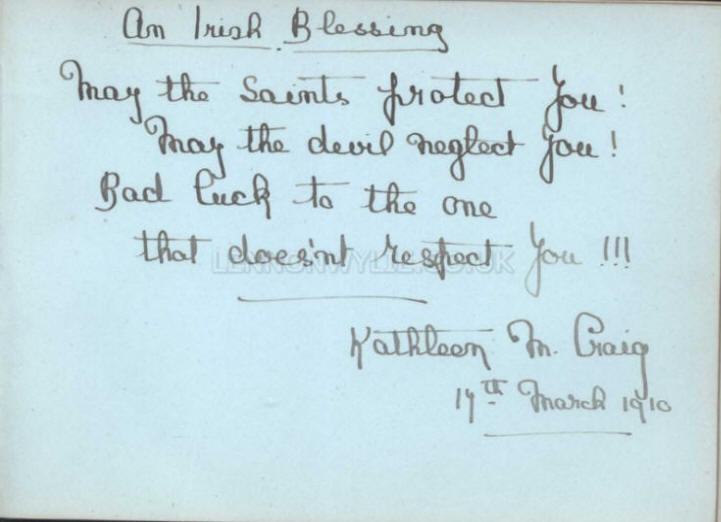 An Irish Blessing
May the Saints protect you!
May the devil neglect you!
Bad luck to the one
that does'nt respect you!!!
LENNONWYLIE.CO.UK
Kathleen M. Craig
17th March 1910